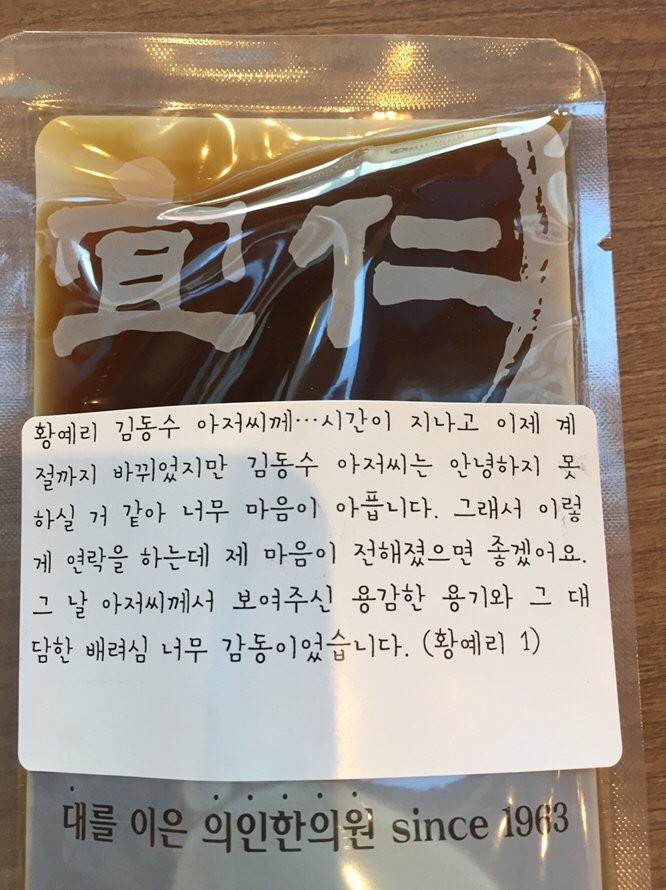 宜仁
황예리 김동수 아저씨께…시간이 지나고 이제 계
절까지 바뀌었지만 김동수 아저씨는 안녕하지 못
하실 거 같아 너무 마음이 아픕니다. 그래서 이렇
게 연락을 하는데 제 마음이 전해졌으면 좋겠어요.
그 날 아저씨께서 보여주신 용감한 용기와 그 대
담한 배려심 너무 감동이었습니다. (황예리 1)
대를 이은 의인한의원 since 1963